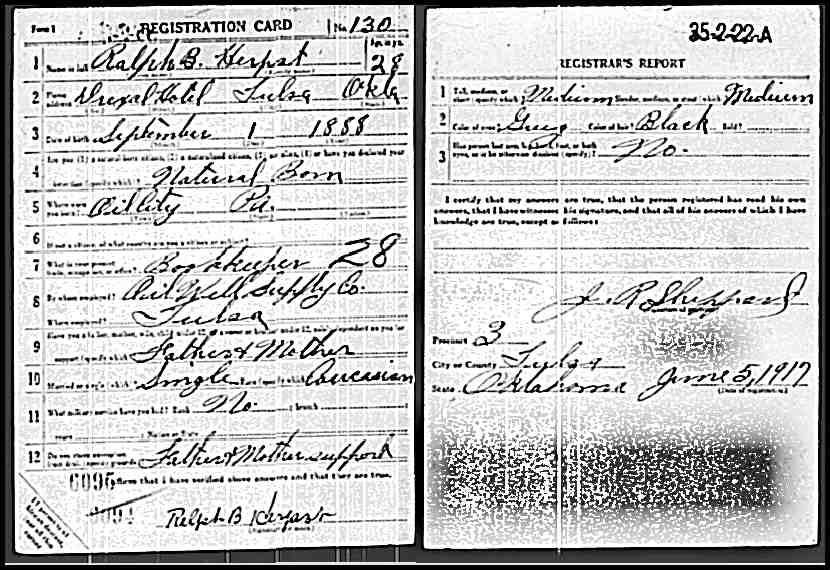 Form 1 REGISTRATION CARD No. 130
1 Name in full Ralph B. Herpst Age, in yrs. 28
2 Home address Drexal Hotel Tulsa Okla
3 Date of birth September 1 1888
4 Are you (1) a natural-born citizen, (2) a naturalized citizen, (3) an alien, (4) or have you declared your
intention (specify which)? Natural Born
5 Where were you born? Oil City Pa.
6 If not a citizen, of what country are you a citizen or subject?
7 What is your present trade, occupation, or office? Bookkeeper 28
8 By whom employed? Oil Well Supply Co.
Where employed? Tulsa
9 Have you a father, mother, wife, child under 12, or a sister or brother under 12, solely dependent on you for
support (specify which)? Father & Mother
10 Married or single (which)? Single Race (specify which)? Caucasian
11 What military service have you had? Rank No. ; branch
years ; Nation or State
12 Do you claim exemption from draft (specify grounds)? Father & Mother support
I affirm that I have verified above answers and that they are true.
Ralph B Herpst
35-2-22-A
REGISTRAR'S REPORT
1 Tall, medium, or short (specify which)? Medium Slender, medium, or stout (which)? Medium
2 Color of eyes? Grey Color of hair? Black Bald?
3 Has person lost arm, leg, hand, foot, or both
eyes, or is he otherwise disabled (specify)? No.
I certify that my answers are true, that the person registered has read his own
answers, that I have witnessed his signature, and that all of his answers of which I have
knowledge are true, except as follows:
J. R. Sheppard
Precinct 3
City or County Tulsa
State Oklahoma June 5, 1917
(Date of registration)